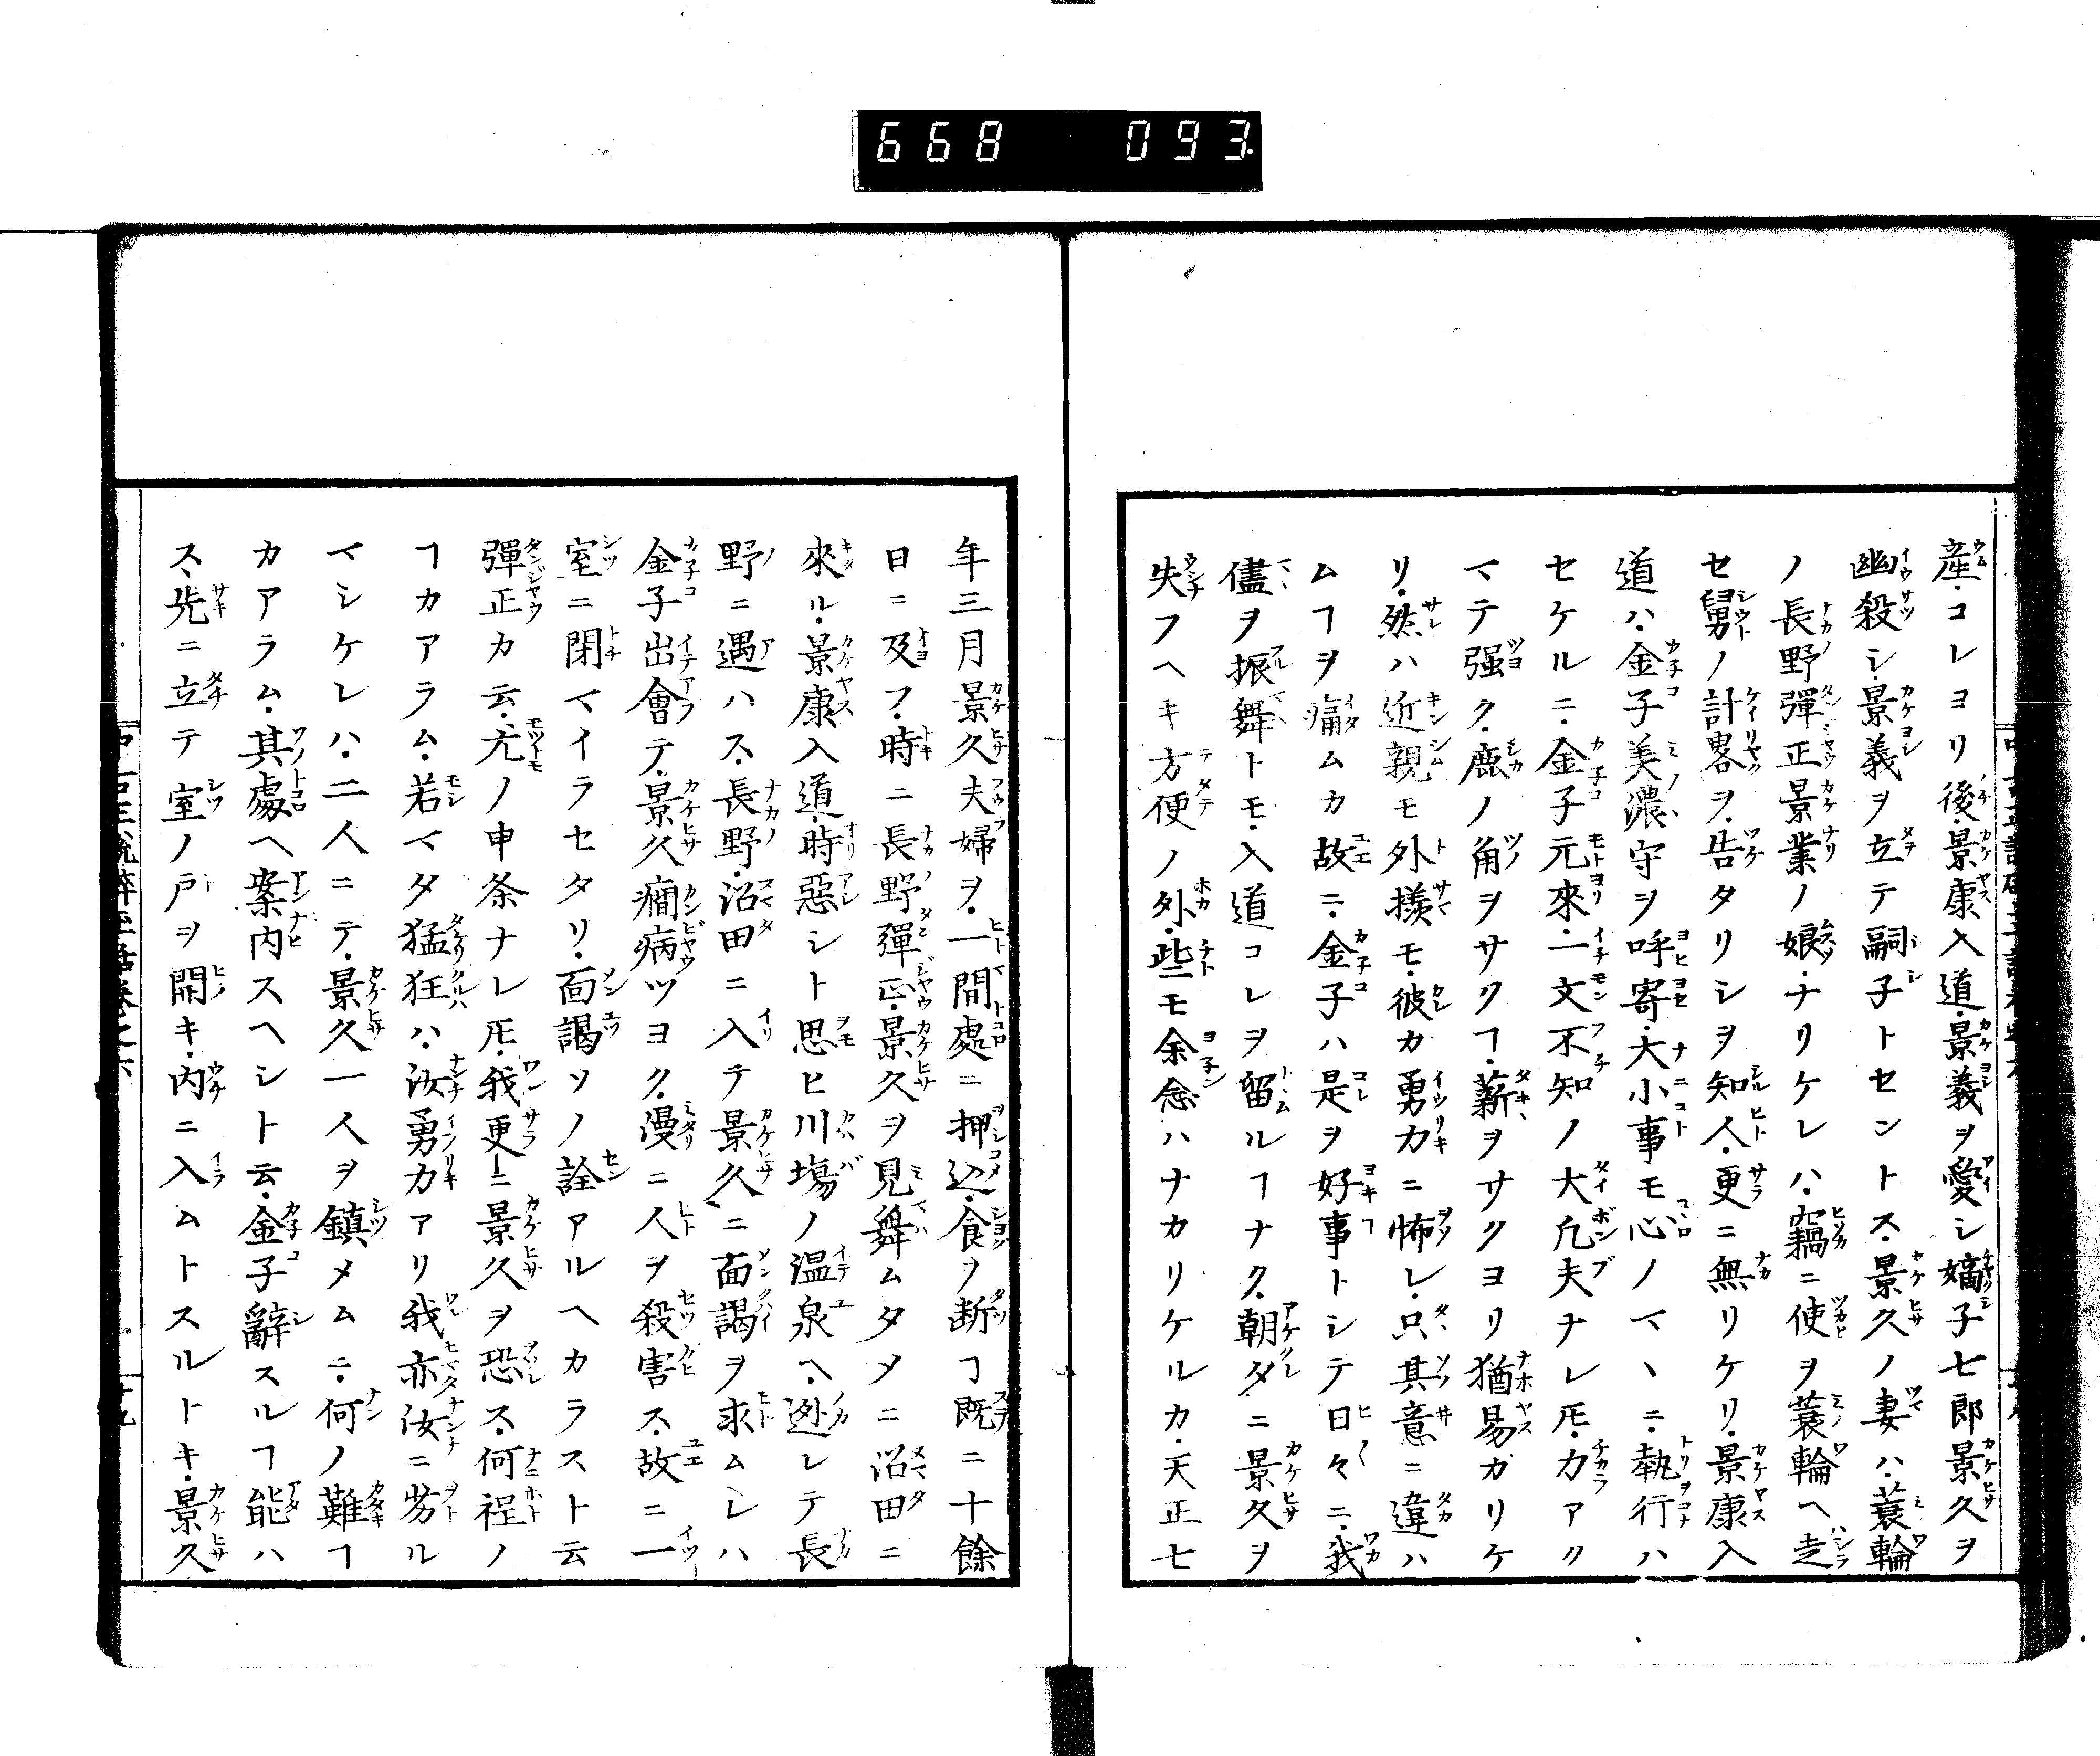 668 093
産コレヨリ後景康入道景義ヲ愛シ嫡子七郎景久ヲ
幽殺シ景義ヲ立テ嗣子トセントス景久ノ妻ハ蓑輪
ノ長野彈正景業ノ娘ナリケレハ竊ニ使ヲ蓑輪ヘ走
セ舅ノ計畧ヲ告タリシヲ知人更ニ無リケリ景康入
道ハ金子美濃守ヲ呼寄大小事モ心ノマヽニ執行ハ
セケルニ金子元來一文不知ノ大凢夫ナレ𪜈カアク
マテ强ク鹿ノ角ヲサクヿ薪ヲサクヨリ猶易ガリケ
リ然ハ近親モ外様モ彼カ勇力ニ怖レ只其意ニ違ハ
ムヿヲ痛ムカ故ニ金子ハ是ヲ好事トシテ日々ニ我
儘ヲ振舞トモ入道コレヲ留ルヿナク朝夕ニ景久ヲ
失フヘキ方便ノ外些モ余念ハナカリケルカ天正七
年三月景久夫婦ヲ一間處ニ押込食ヲ断ヿ既ニ十餘
日ニ及フ時ニ長野彈正景久ヲ見舞ムタメニ沼田ニ
來ル景康入道時惡シト思ヒ川塲ノ温泉ヘ迯レテ長
野ニ遇ハス長野沼田ニ入テ景久ニ面謁ヲ求ムレハ
金子出會テ景久癇病ツヨク漫ニ人ヲ殺害ス故ニ一
室ニ閉マイラセタリ面謁ソノ詮アルヘカラスト云
彈正カ云尤ノ申条ナレ𪜈我更ニ景久ヲ恐ス何程ノ
ヿカアラム若マタ猛狂ハ汝勇力アリ我亦汝ニ劣ル
マシケレハ二人ニテ景久一人ヲ鎮メムニ何ノ難ヿ
カアラム其處ヘ案内スヘシト云金子辭スルヿ能ハ
ス先ニ立テ室ノ戸ヲ開キ内ニ入ムトスルトキ景久